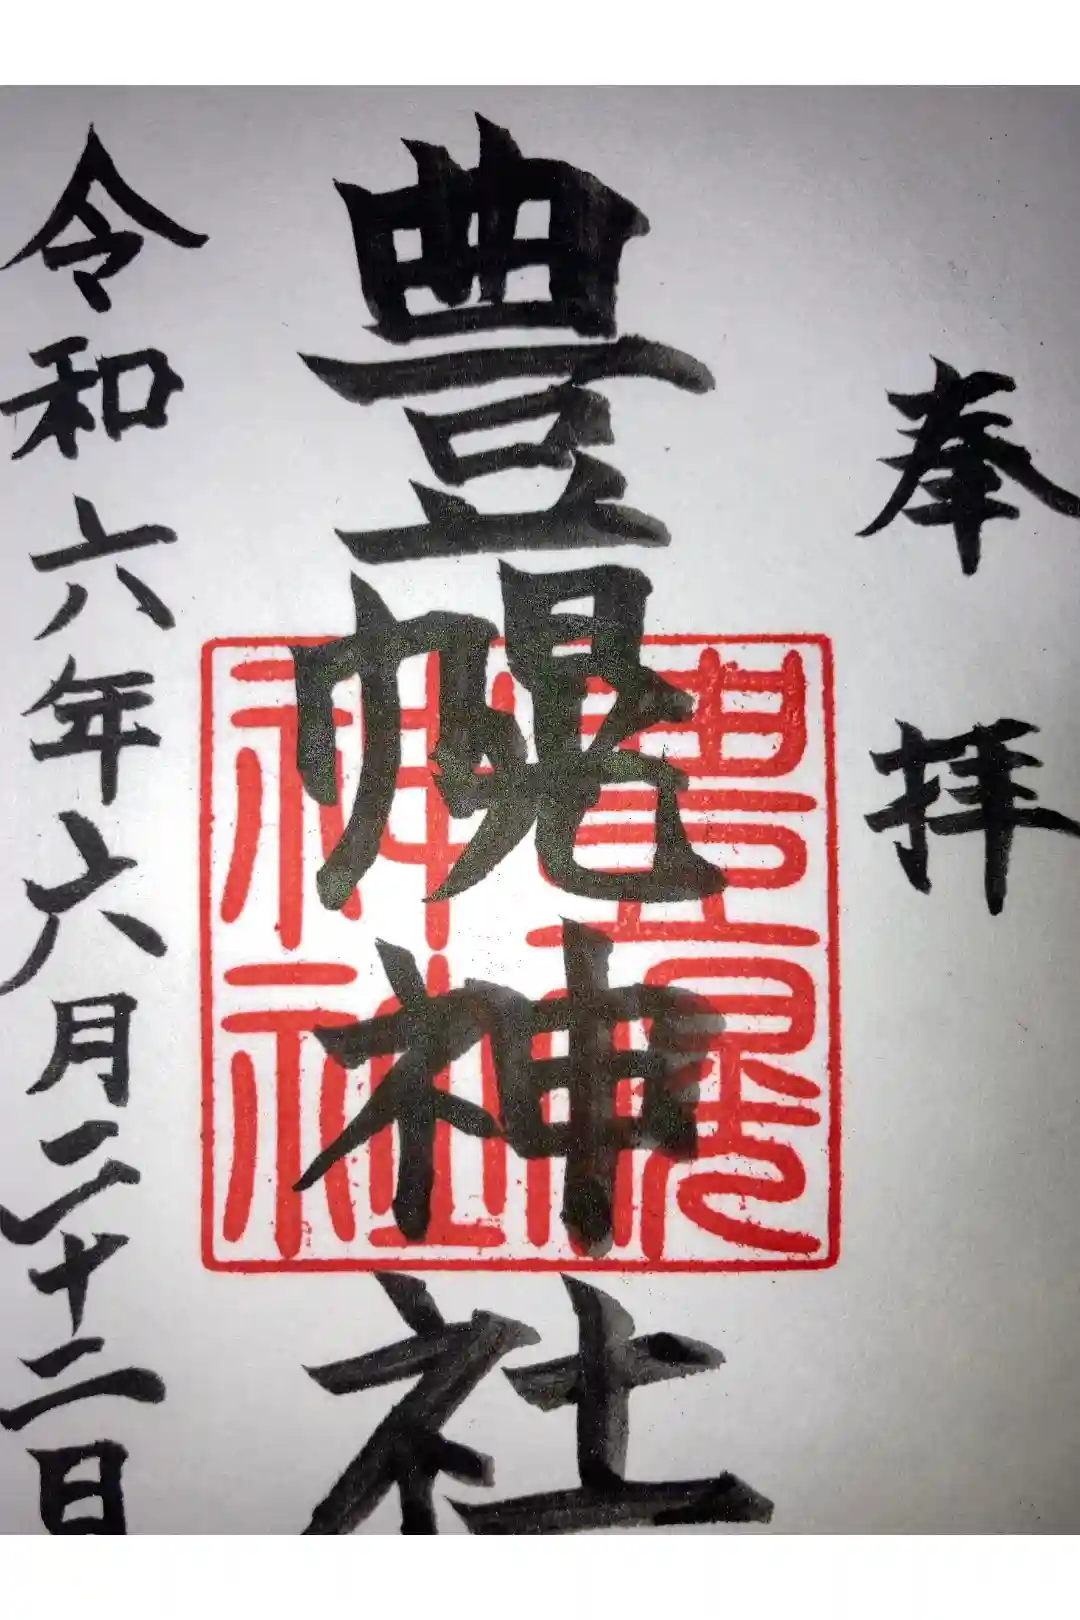 奉拝
豊幌神社
豊幌
神社
令和六年六月二十二日